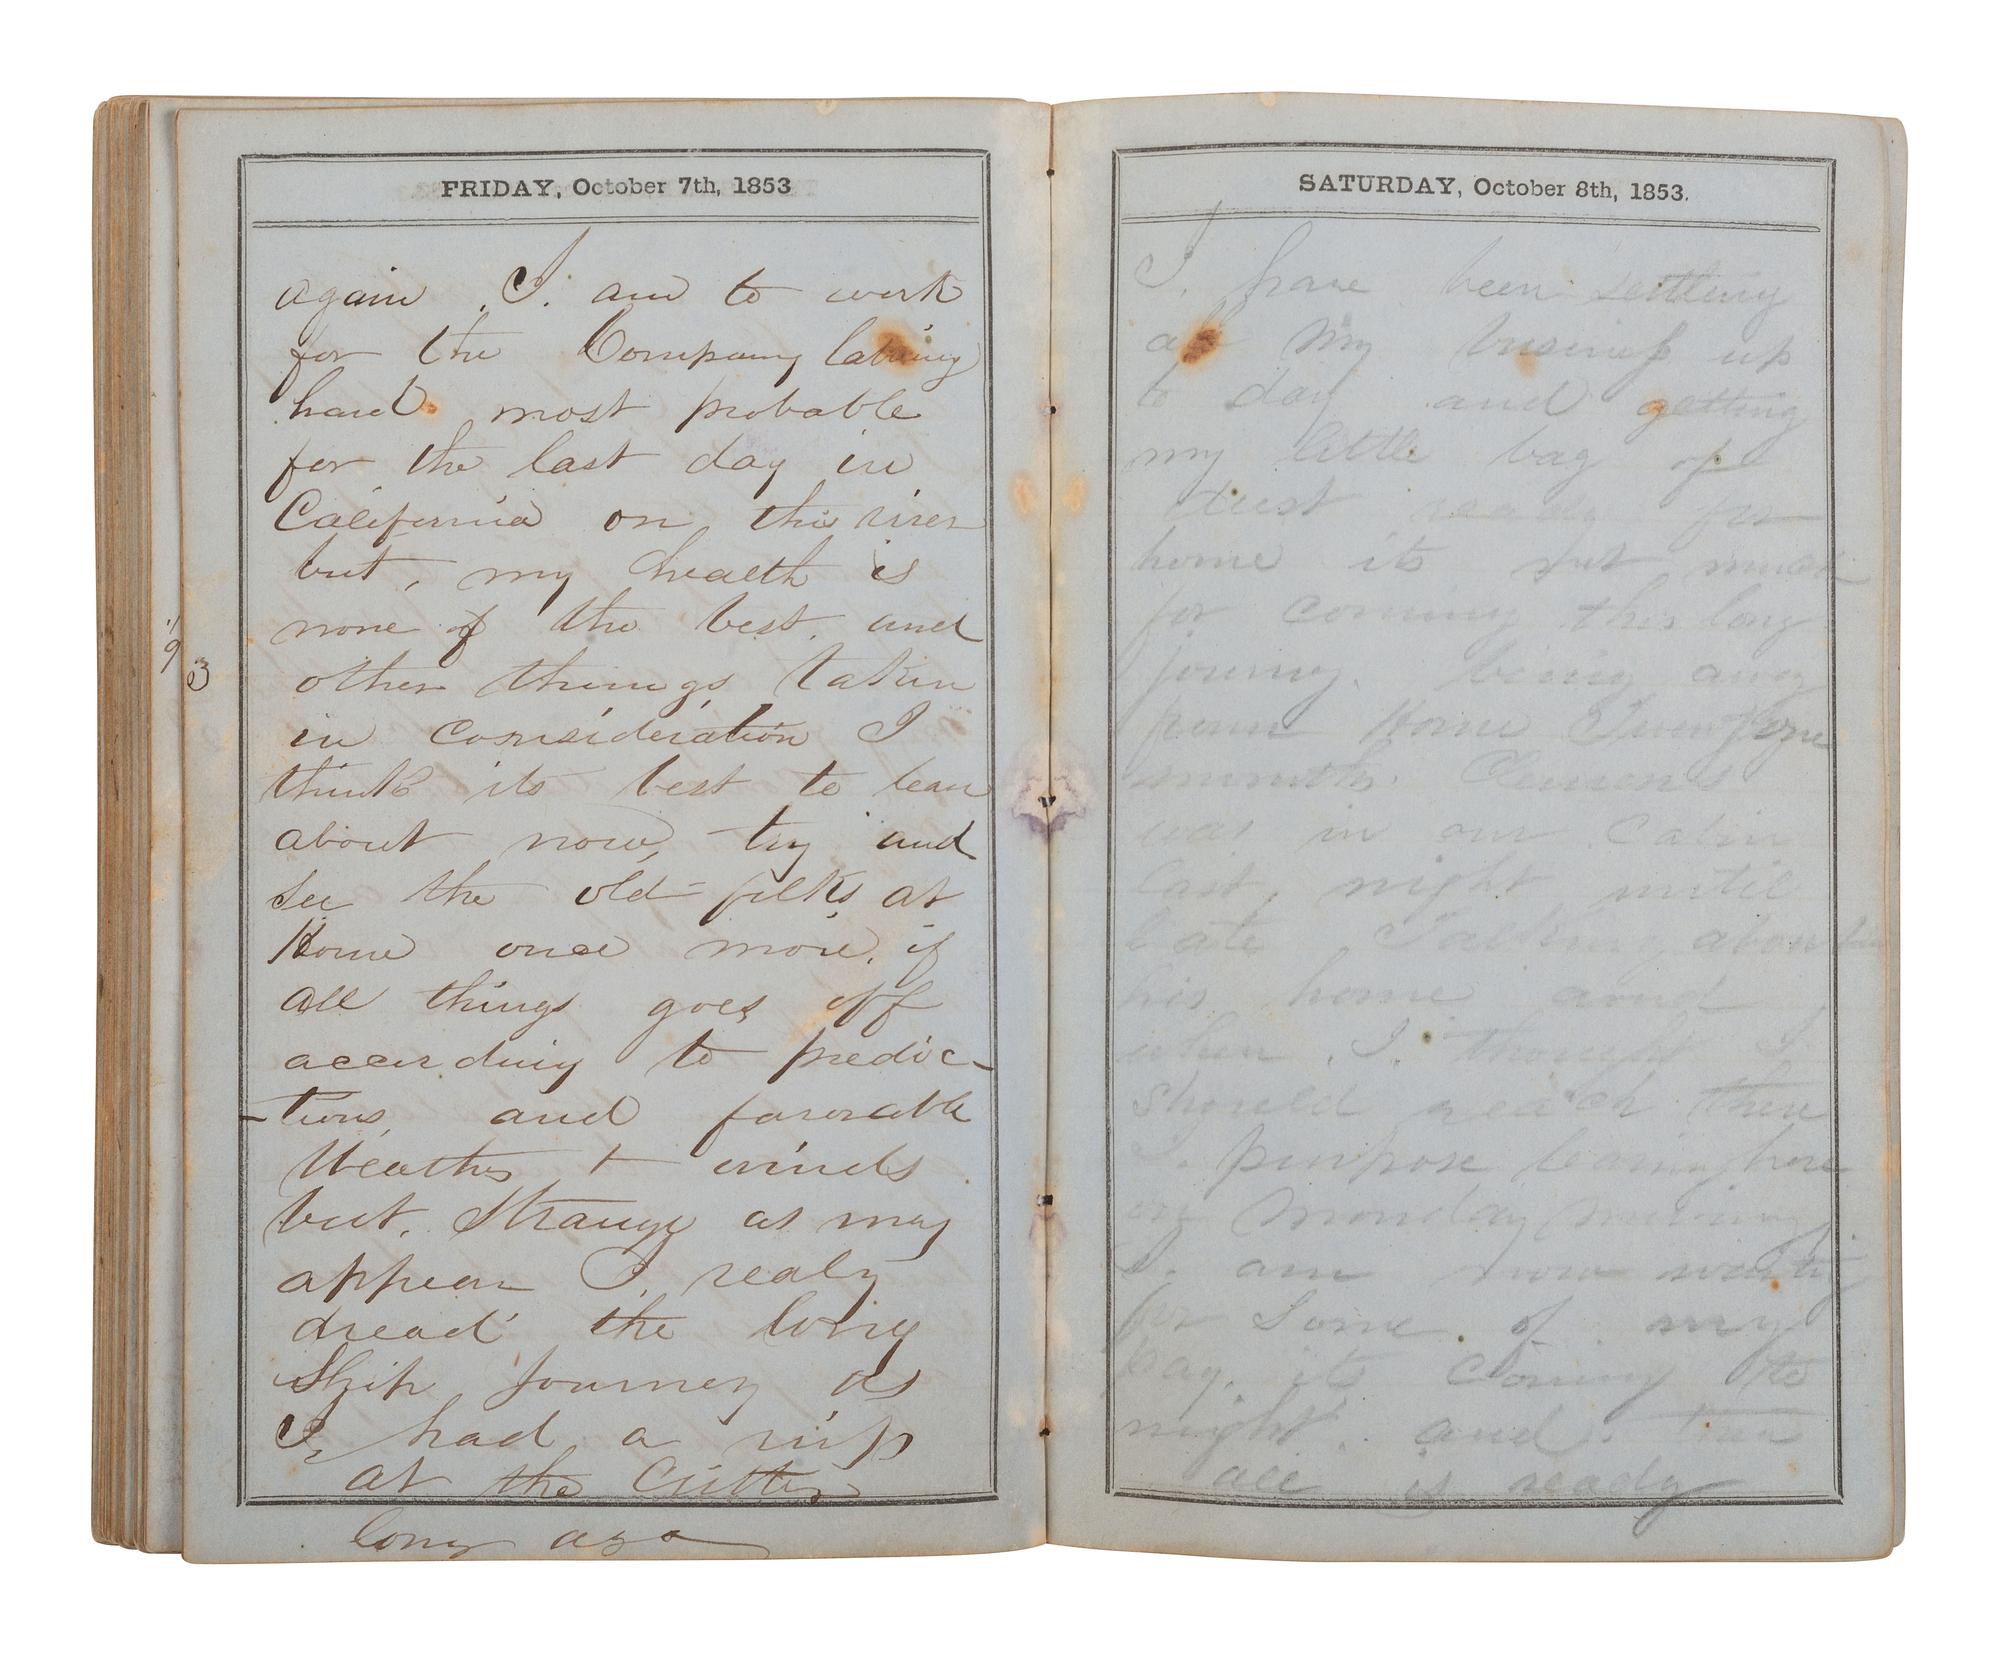 FRIDAY, October 7th, 1853
again. I. am to work
for the Company laboring
hard most probable
for the last day in
California on this river
but, my health is
none of the best, and
other things taken
in consideration I
think its best to leav
about now, try and
see the old folks at
Home once more, if
all things goes off
according to predic-
-tions, and favorable
Weather + winds
but, Strange as may
appear I, realy
dread the long
Ship Journey as
I, had a
at the
long ago
3
SATURDAY, October 8th, 1853.
I. have been settling
all my business up
to day and getting
my little bag of
dust ready for
home its not much
for coming this long
journey. being away
from Home Twenty one
months. Clemens
was in our Cabin
last, night until
late Talking about
his home and
when, I. thought I
should reach there
I. purpose leaving here
on Monday morning,
I. am now waiting
for Some. of. my
pay. its coming to
night. and. then
all is ready